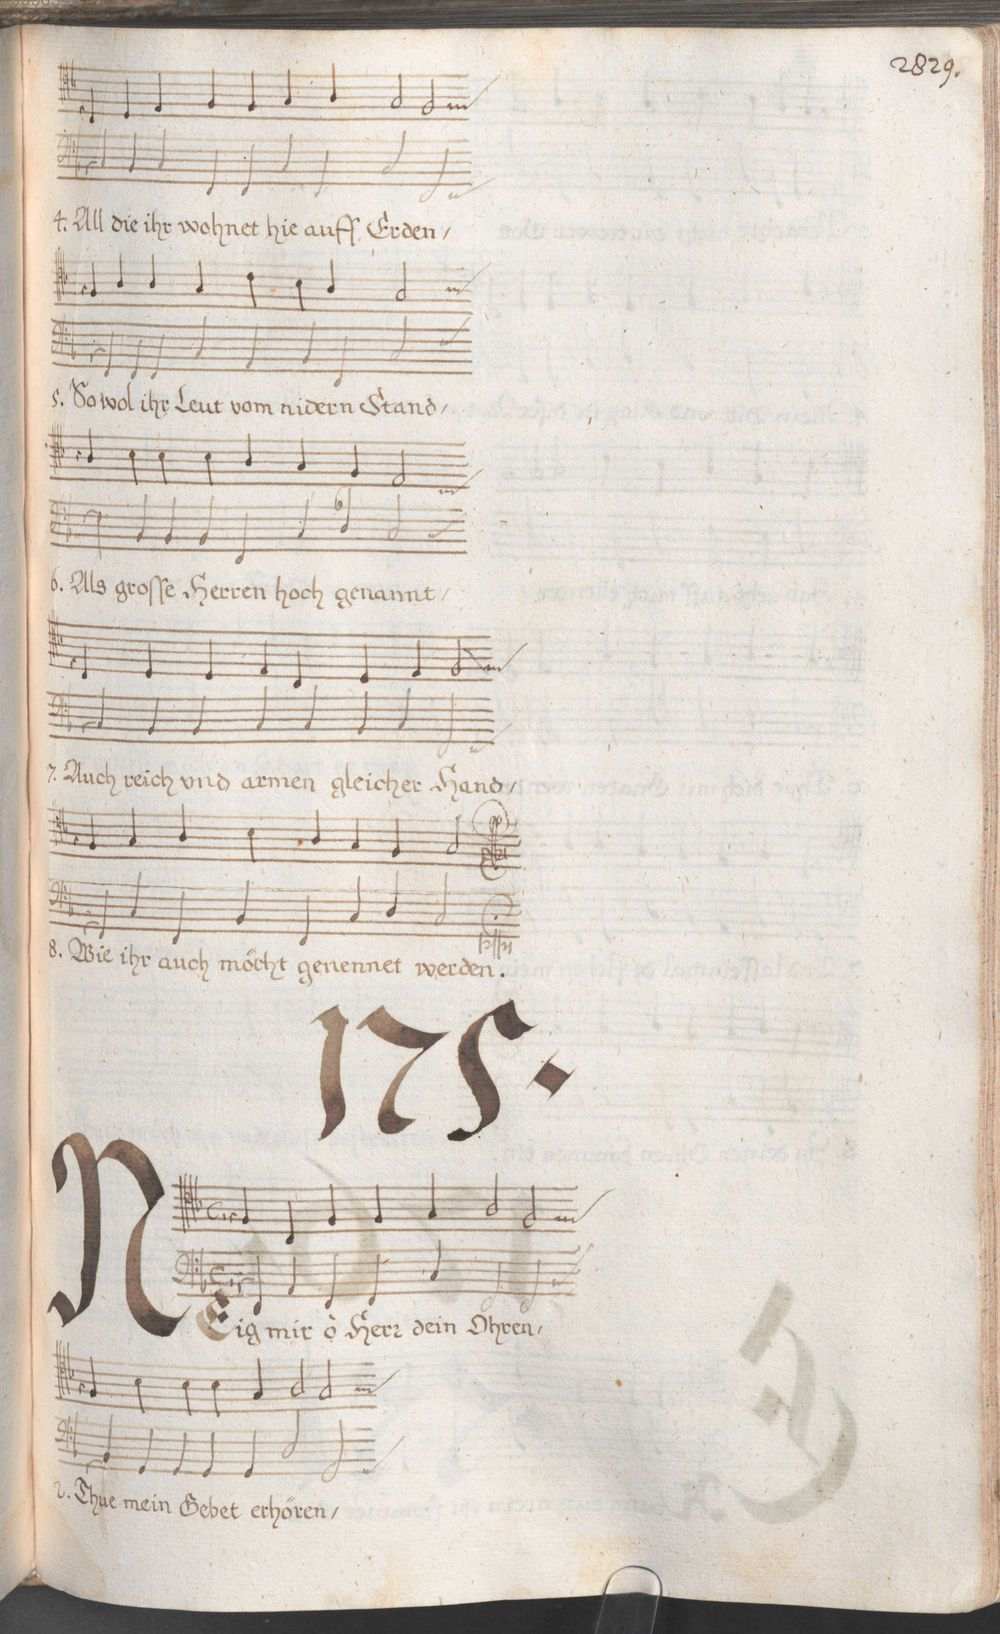 2829.
4. All die ihr wohnet hie auff Erden/
5. So wol ihr Leut vom nidern Stand/
6. Als grosse Herren hoch genannt/
7. Auch reich vnd armen gleicher Hand/
8. Wie ihr auch möcht genennet werden.
175.
NEig mir ò Herr dein Ohren/
2. Thue mein Gebet erhören/